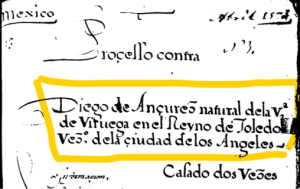 Mexico
Abril 1574
Processo contra
N 3.
Diego de Ançures natural de la Vª
de Viruega en el Reyno de Toledo
Vezº. de la çiudad de los Angeles
Casado dos Vezes